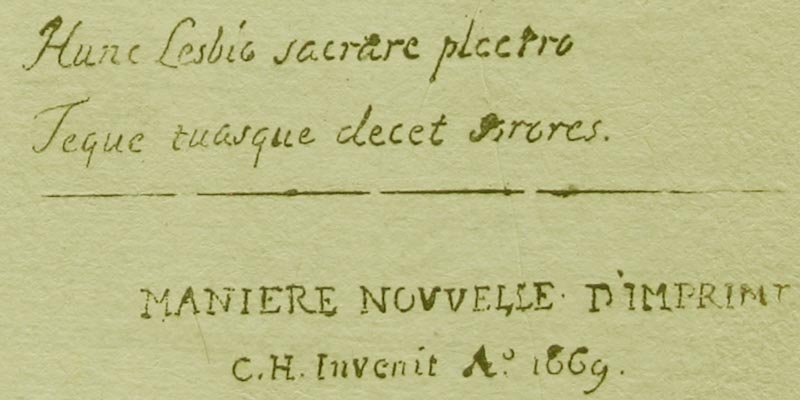 Hunc Lesbio sacrare plectro
Teque tuasque decet sorores.
MANIERE NOVVELLE D'IMPRIM
C.H. Invenit Aº 1669.